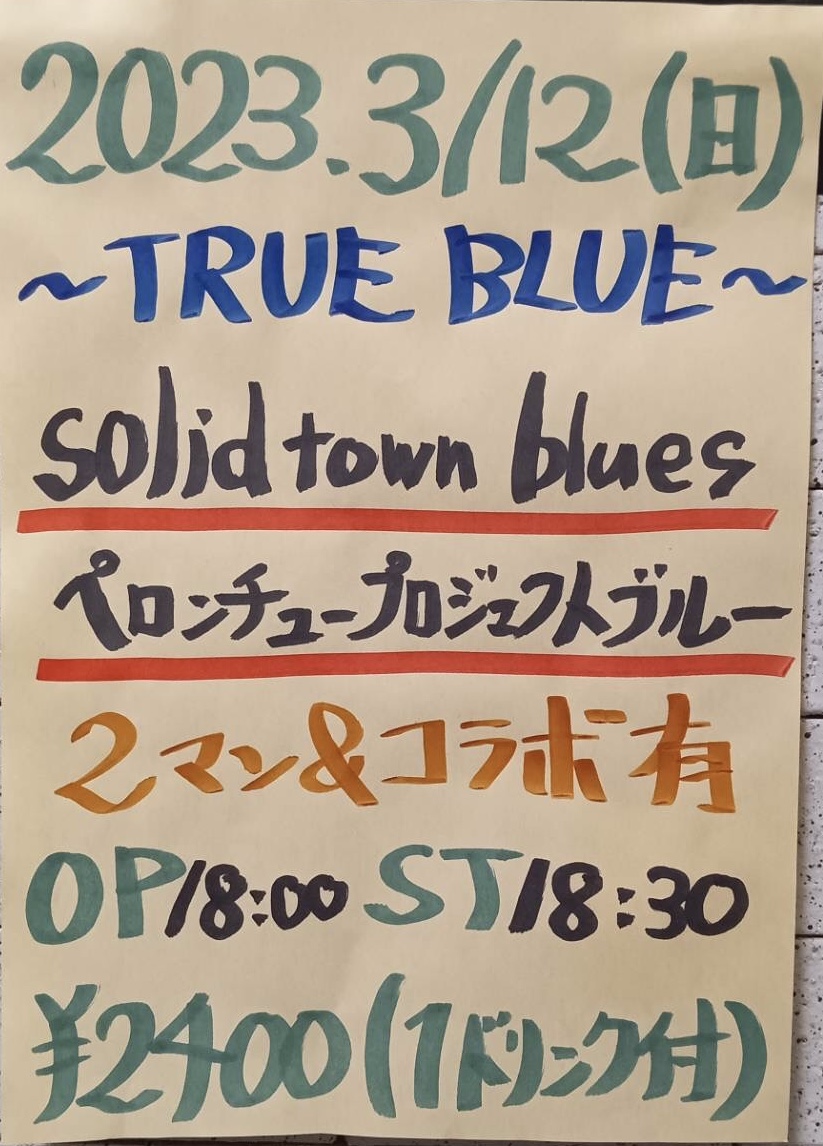 2023.3/12(日)
~TRUE BLUE~
solid town blues
ペロンチュープロジェクトブルー
2マン&コラボ有
OP/18:00 ST/18:30
¥2400(1ドリンク付)